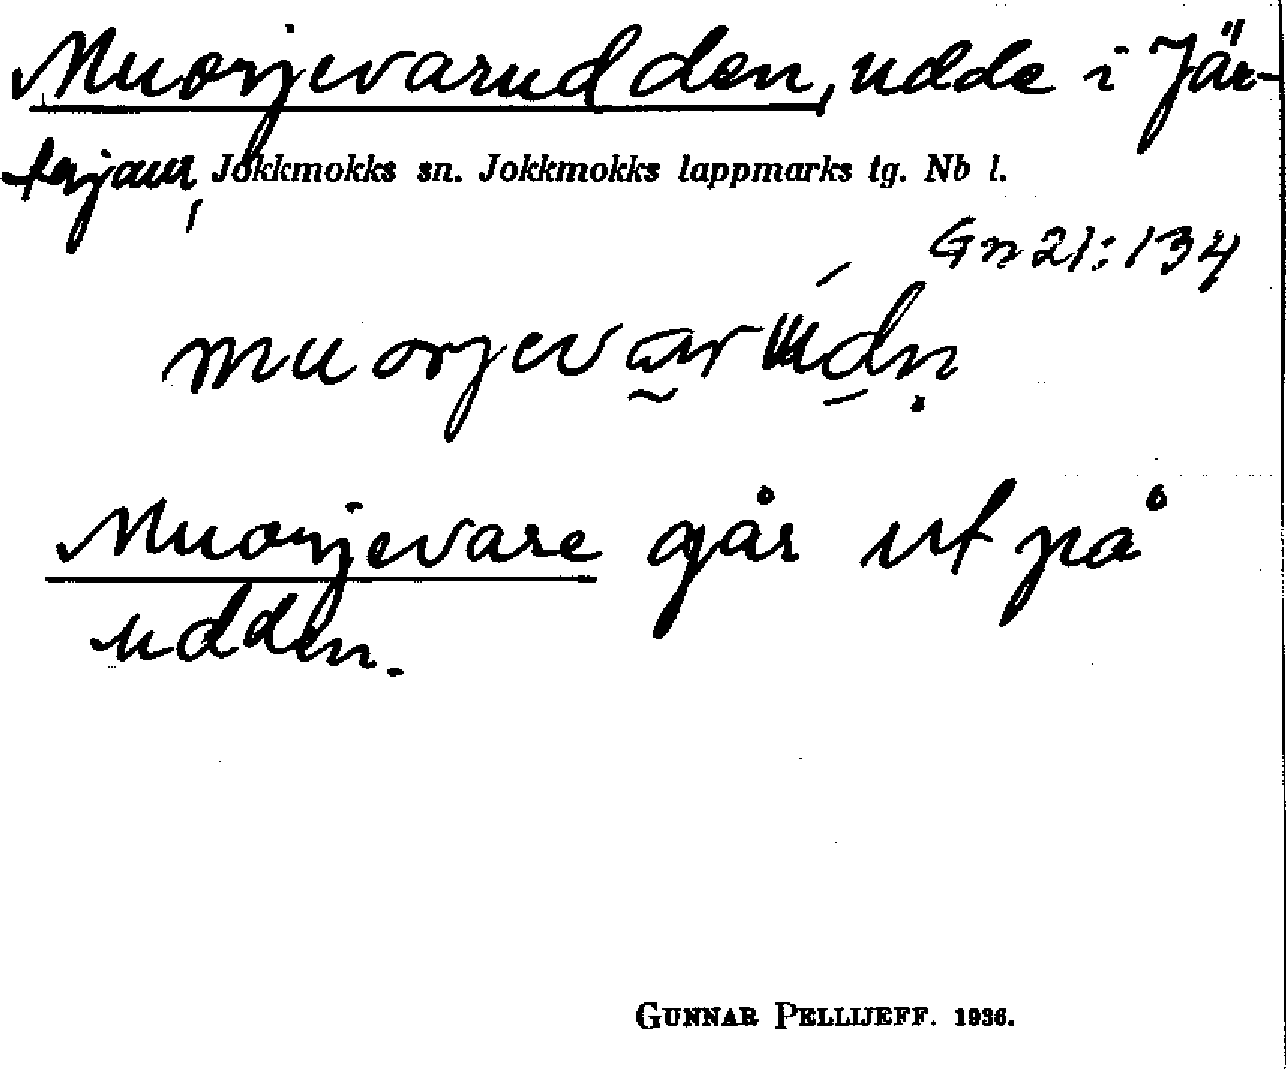 Muorjevarudden, udde i Jär-
terjaur, Jokkmokks sn. Jokkmokks lappmarks tg. Nb l.
Gn 21:134
Muorjevare går ut på
udden.
GUNNAR PELLIJEFF. 1936.